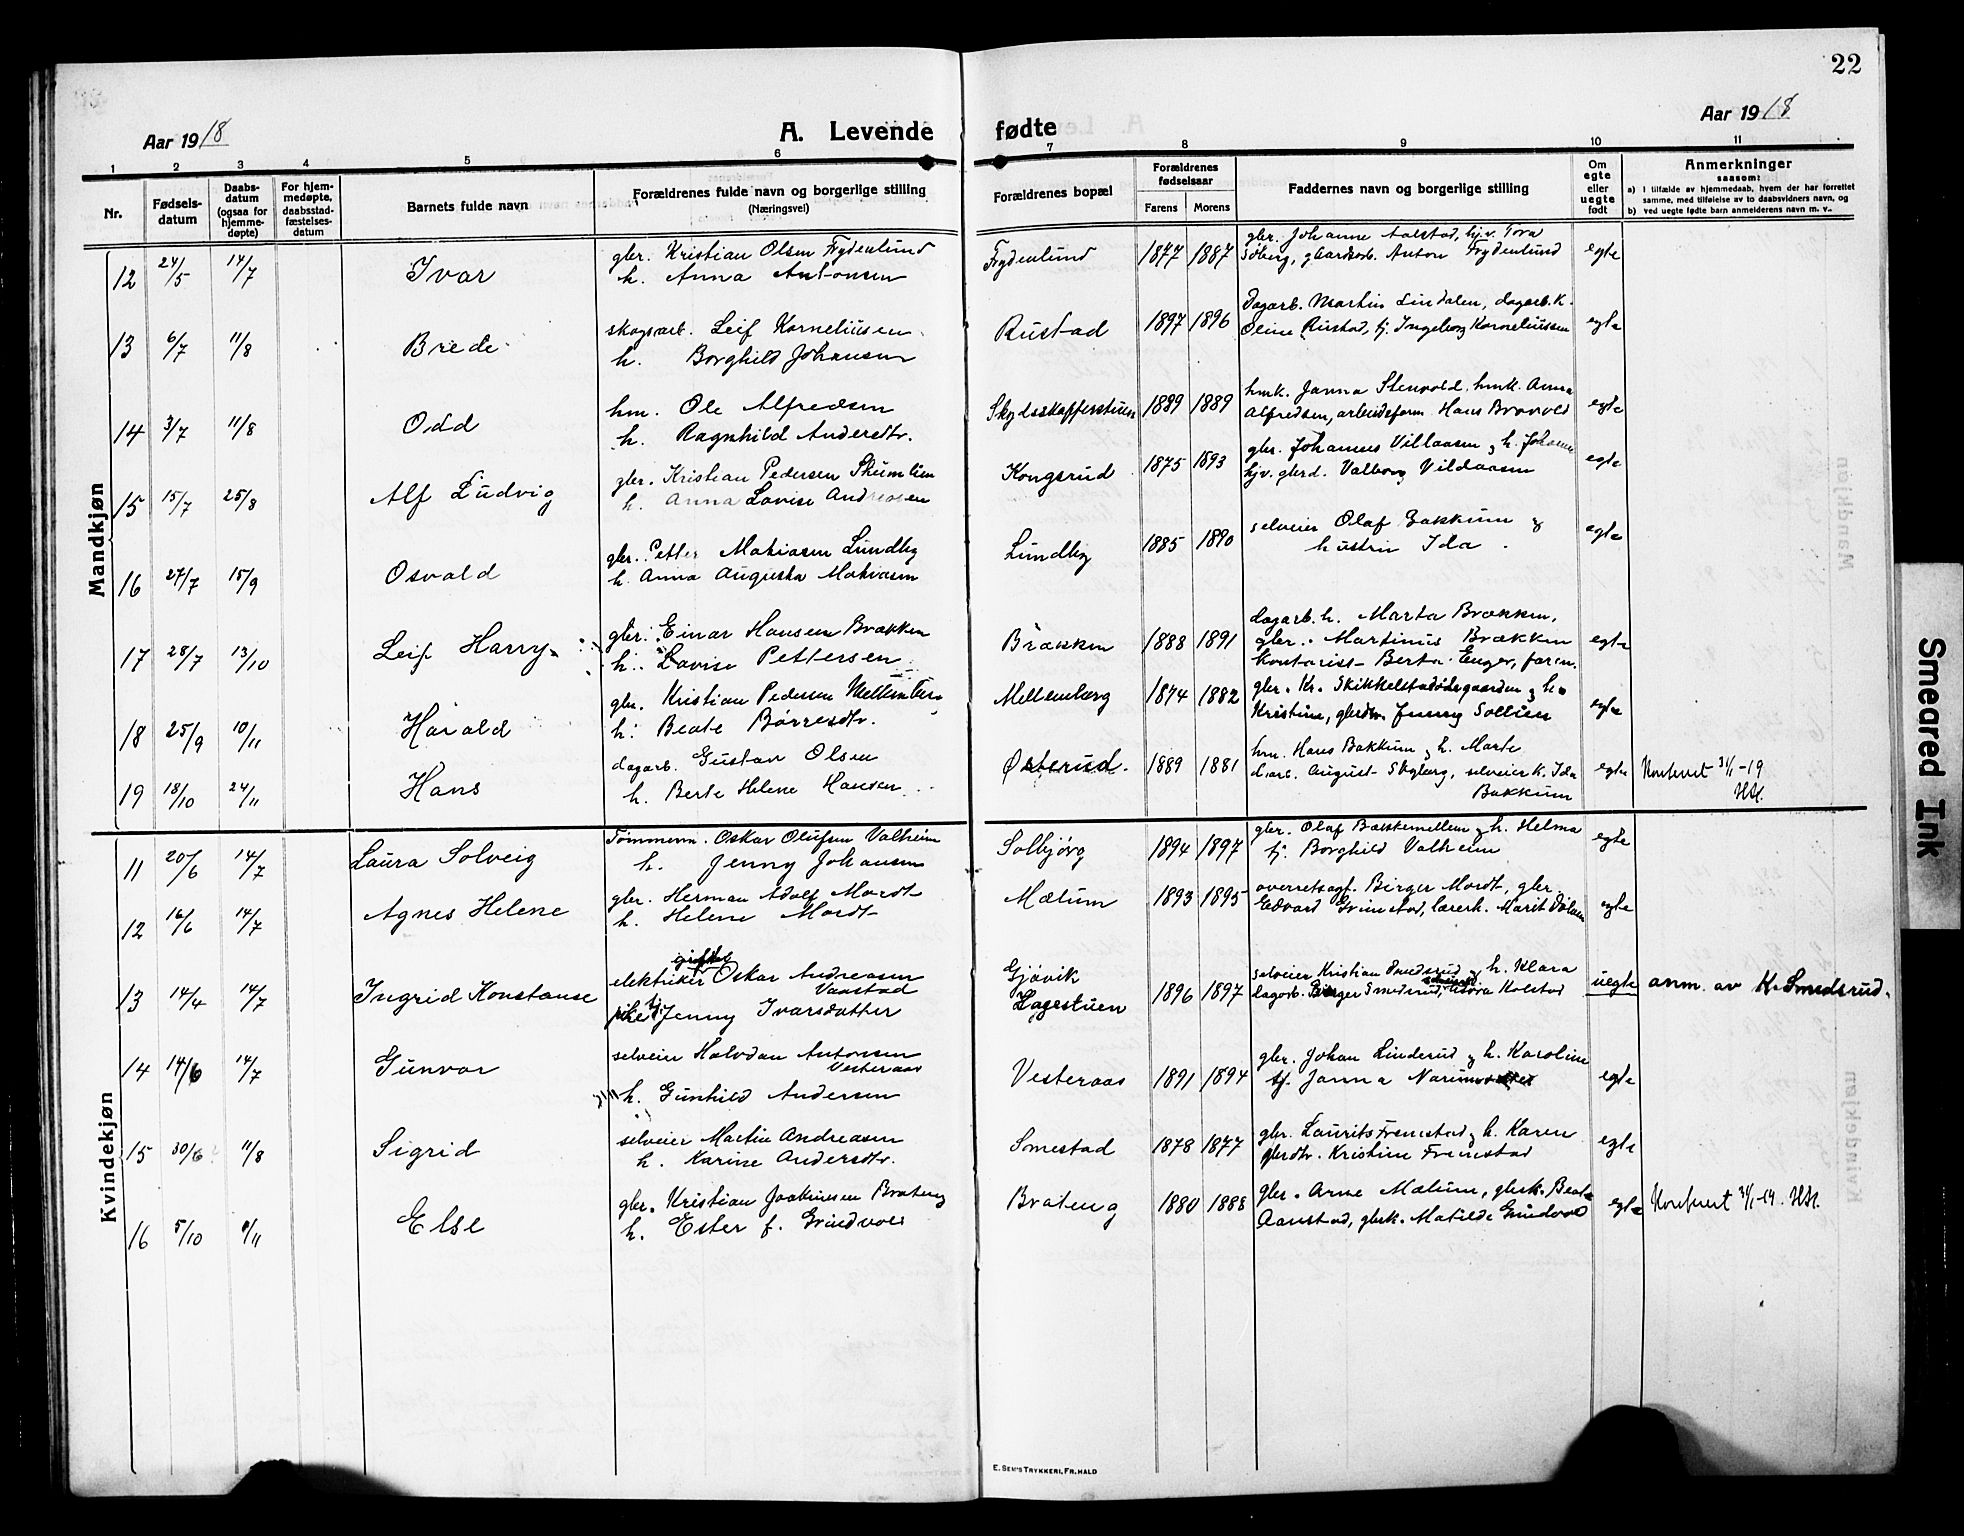 22
Aar 1918
A. Levende fødte
Aar 1918
1 2 3 4 5 6 7 8 9 10 11
Nr.
Fødsels-
datum
Daabs-
datum
(ogsaa for
hjemme-
døpte)
For hjem-
medøpte,
daabsstad-
fæstelses-
datum
Barnets fulde navn
Forældrenes fulde navn og borgerlige stilling
(Næringsvei)
Forældrenes bopæl
Forældrenes
fødselsaar
Farens Morens
Faddernes navn og borgerlige stilling
Om
egte
eller
uegte
født
Anmerkninger
saasom:
a) I tilfælde av hjemmedaab, hvem der har forrettet
samme, med tilføielse av to daabsvidners navn, og
b) ved uegte fødte barn anmelderens navn m. v.
Mandkjøn
12 24/5 14/7 Ivar
gbr. Kristian Olsen Frydenlund
h. Anna Antonsen
Frydenlund 1877 1887
gbr. Johanne Aalstad, hjv. Tora
Søberg, gaardsarb. Anton Frydenlund
egte
13 6/7 11/8 Brede
skogsarb. Leif Korneliusen
h. Borghild Johansen
Rustad 1897 1896
Dagarb. Martin Lindalen, dagarb. k.
Oline Rustad, tj. Ingeborg Korneliussen
egte
14 3/7 11/8 Odd
hm. Ole Alfredsen
h. Ragnhild Andersdtr.
Skydsskafferstuen 1889 1889
hmk. Janna Stenvold, hmk. Anna
Alfredsen, arbeidsform. Hans Bravold
egte
15 15/7 25/8 Alf Ludvig
gbr. Kristian Pedersen Skumlien
h. Anna Lovise Andreasen
Kongsrud 1875 1893
gbr. Johannes Villaasen og h. Johanne
hjv. gbrd. Valborg Vildaasen
egte
16 27/7 15/9 Osvald
gbr. Petter Mathiasen Lundby
h. Anna Augusta Mathiasen
Lundby 1885 1890
selveier Olaf Bakkum og
hustru Ida.
egte
17 28/7 13/10 Leif Harry
gbr. Einar Hansen Brækken
h. Lovise Pettersen
Brækken 1888 1891
dagarb. h. Marta Brækken,
gbr. Martinus Brækken
Kontorist Berta Enger, faren.
egte
18 25/9 10/11 Harald
gbr. Kristian Pedersen Mellemberg
h. Beate Børresdtr.
Mellemberg 1874 1882
gbr. Kr. Skikkelstadødegaarden og h.
Kristine, gbrdtr. Jenny Sollien
egte
19 18/10 24/11 Hans
dagarb. Gustav Olsen
h. Berte Helene Hansen
Østerud. 1889 1881
hm. Hans Bakkum og h. Marte
d.arb. August Skyberg, selveier k. Ida
Bakkum
egte Konferert 31/1-19
HH.
Kvindekjøn
11 20/6 14/7 Laura Solveig
Tømmerm. Oskar Olufsen Valheim
h. Jenny Johansen
Solbjørg 1894 1897
gbr. Olaf Bakkemellem og h. Helma
tj. Borghild Valheim
egte
12 16/6 14/7 Agnes Helene
gbr. Herman Adolf Mordt
h. Helene Mordt
Mælum 1893 1895
overretssagf. Birger Mordt, gbr.
Edvard Grimstad, lærerk. Marit
egte
13 14/4 14/7 Ingrid Konstanse
elektriker Oskar Andreasen
Vaastad
pike tj. Jenny Ivarsdatter
Gjøvik
Hagestuen 1896 1897
selveier Kristian Smedsrud og h. Klara
dagarb. Birger Smedsrud, Kolstad
uegte anm. av K. Smedsrud.
14 14/6 14/7 Gunvor
selveier Halvdan Antonsen
Vesteraas
h. Gunhild Andersen
Vesteraas 1891 1894
gbr. Johan Linderud og h. Karoline
tj. Janna
egte
15 30/6 11/8 Sigrid
selveier Martin Andreasen
h. Karine Andersdtr.
Smestad 1878 1877
gbr. Laurits Fremstad og h. Karen
gbrdtr. Kristine Fremstad
egte
16 5/10 /11 Else
gbr. Kristian Joakimsen Brateng
h. Ester f. Grindvold
Brateng 1880 1888
gbr. Arne Mælum, gbrk. Beate
Aanstad, gbrk. Matilde Grindvold
egte Konferert 31/1-19. HH.
E. SEM'S TRYKKERI, FR.HALD
Smeared Ink